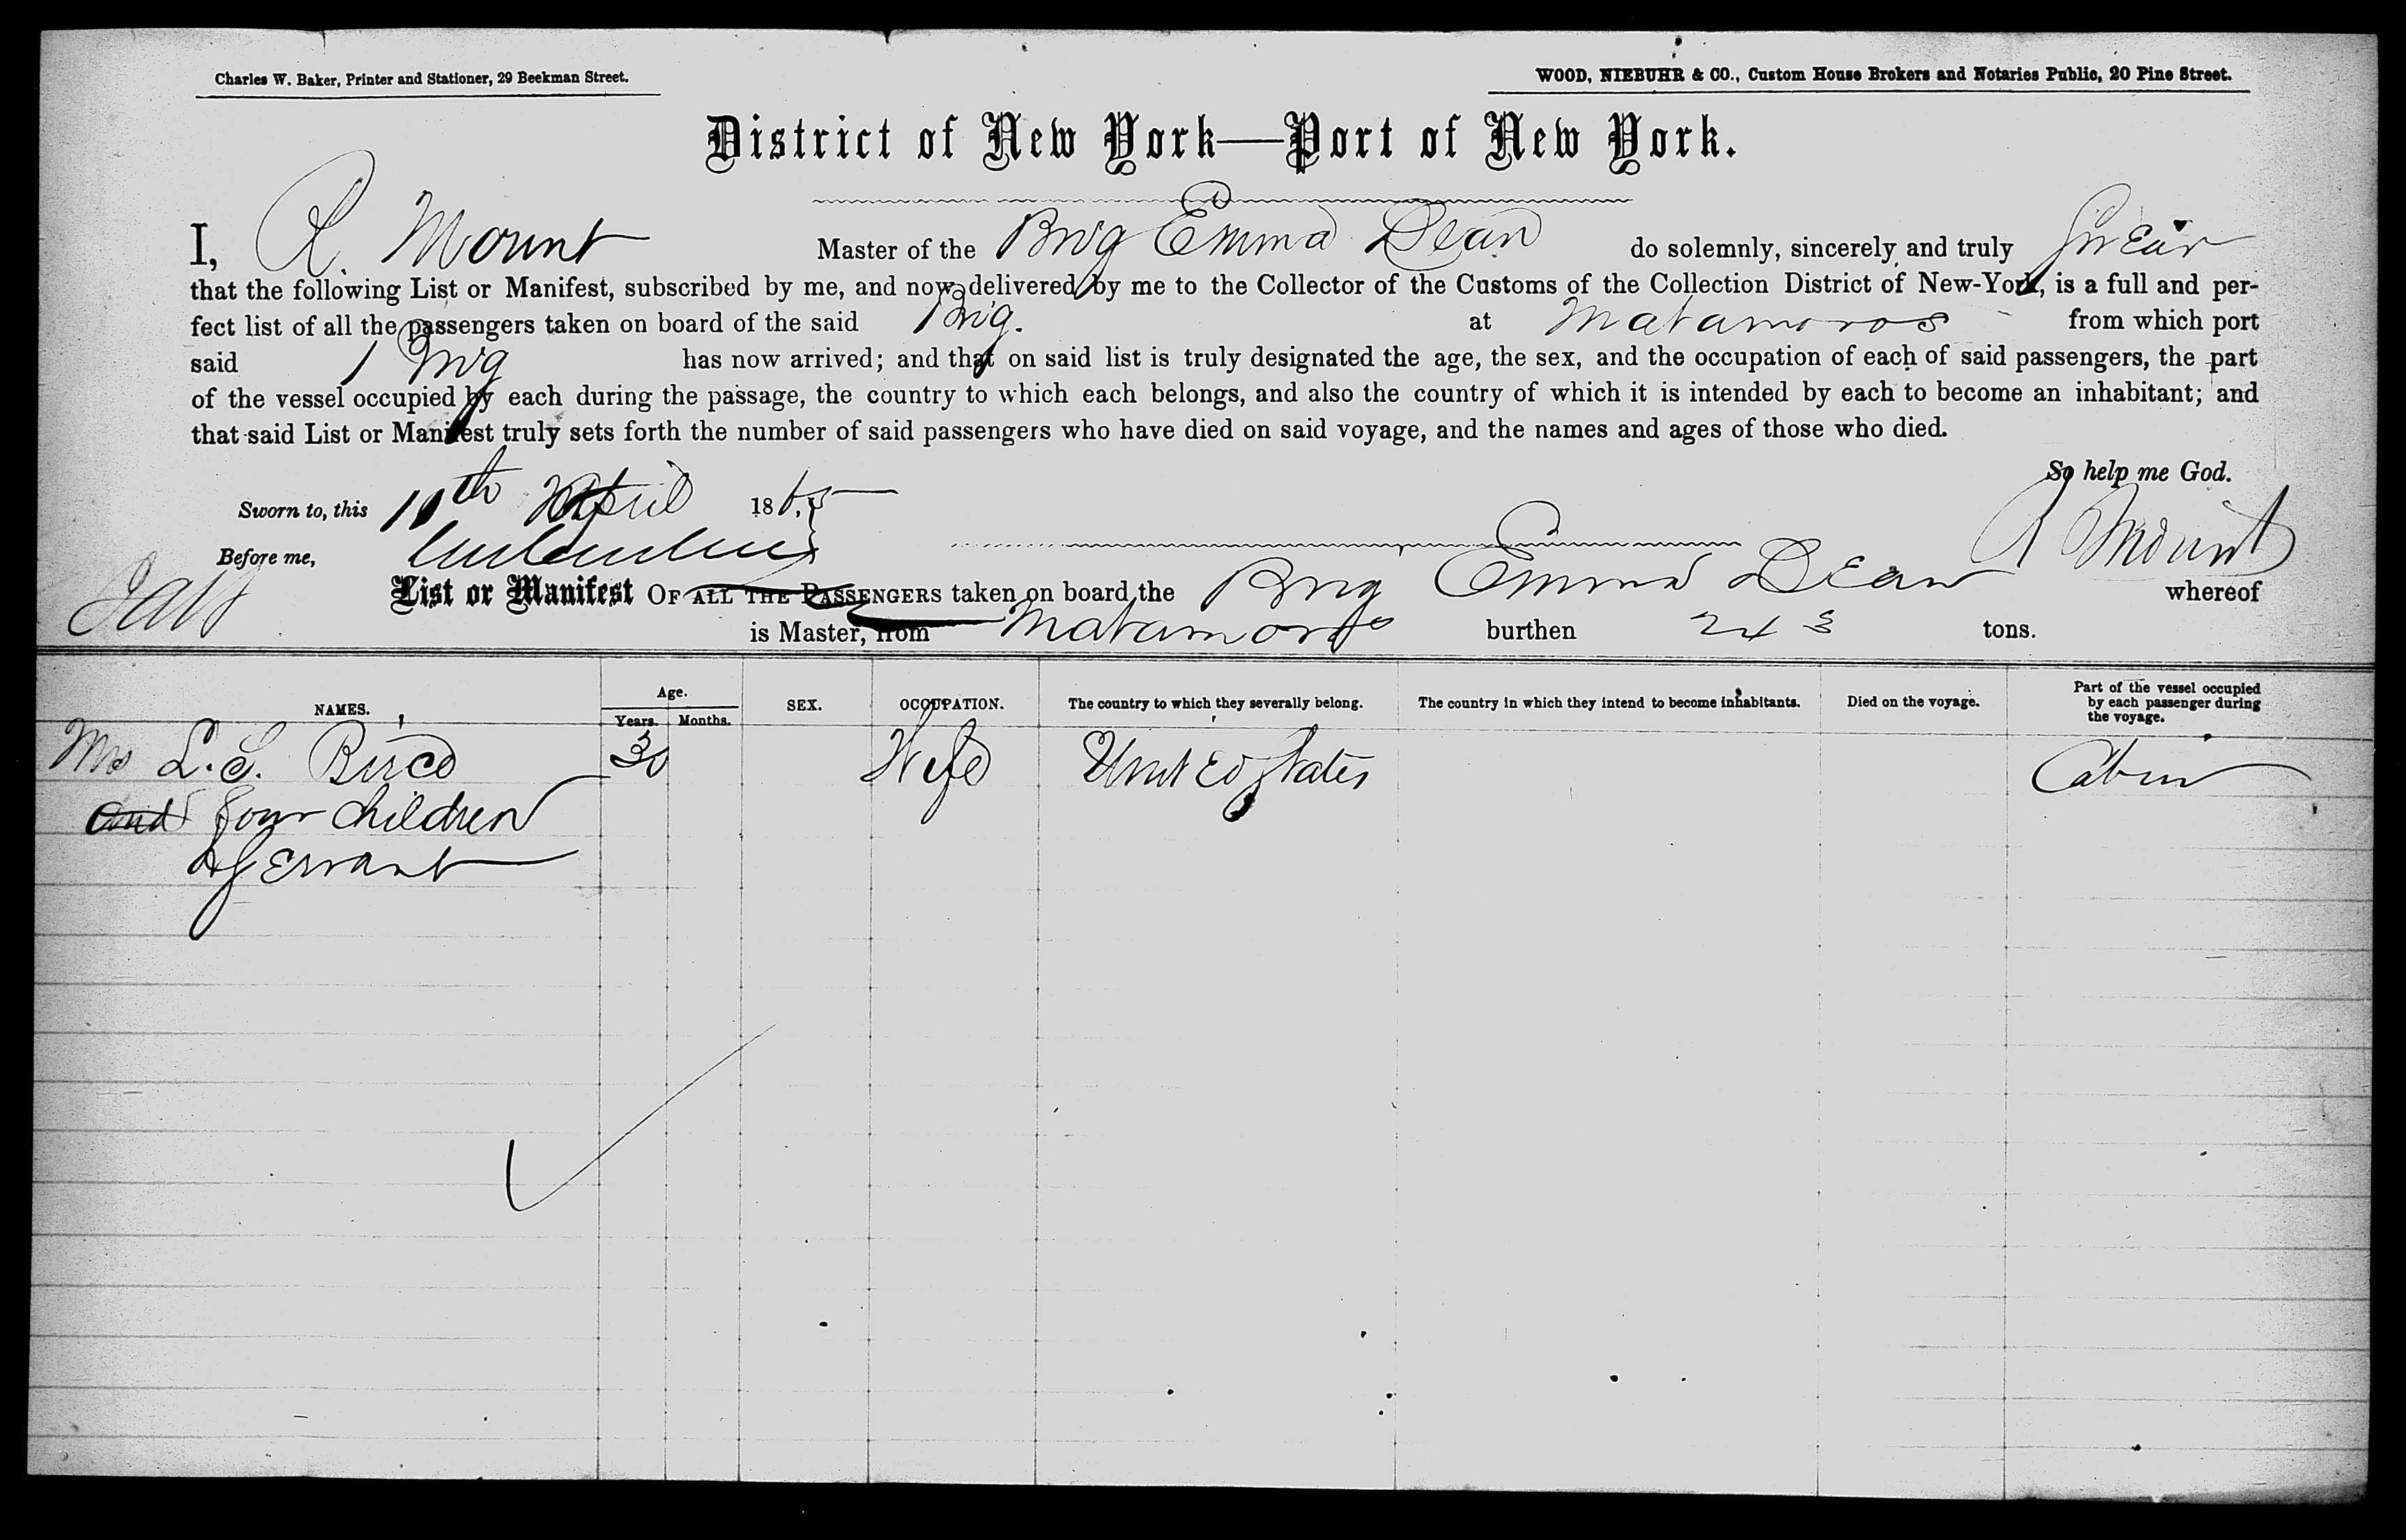 Charles W. Baker, Printer and Stationer, 29 Beekman Street.
WOOD, NIEBUHR & CO., Custom House Brokers and Notaries Public, 20 Pine Street.
District of New York—Port of New York.
I, R. Mount Master of the Brig Emma Dean do solemnly, sincerely and truly swear
that the following List or Manifest, subscribed by me, and now delivered by me to the Collector of the Customs of the Collection District of New-York, is a full and per-
fect list of all the passengers taken on board of the said Brig. at Matamoros from which port
said Brig has now arrived; and that on said list is truly designated the age, the sex, and the occupation of each of said passengers, the part
of the vessel occupied by each during the passage, the country to which each belongs, and also the country of which it is intended by each to become an inhabitant; and
that said List or Manifest truly sets forth the number of said passengers who have died on said voyage, and the names and ages of those who died.
So help me God.
Sworn to, this 10th April 1865
R Mount
Before me,
List or Manifest OF ALL THE PASSENGERS taken on board the Brig Emma Dean whereof
is Master, from Matamoros burthen 243 tons.
NAMES. Age. Years. Months. SEX. OCCUPATION. The country to which they severally belong. The country in which they intend to become inhabitants. Died on the voyage. Part of the vessel occupied by each passenger during the voyage.
Mrs L. S. 30 Wife United States Cabin
and four children
& Servant